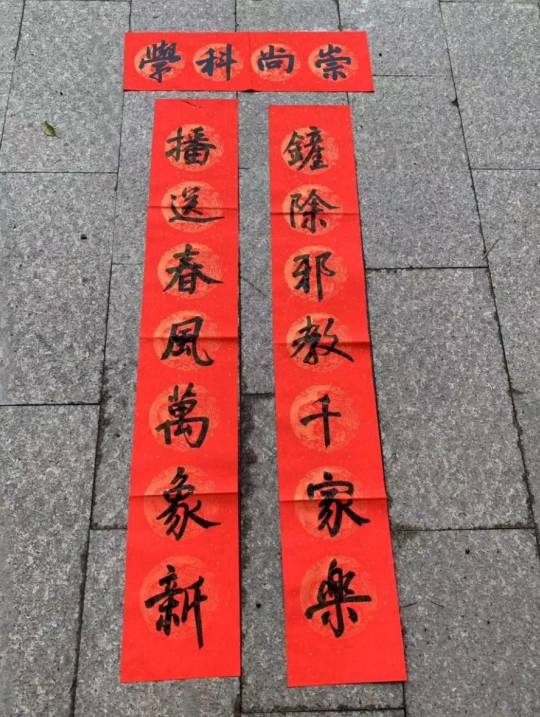 崇尚科學
鏟除邪教千家樂
播送春風萬象新